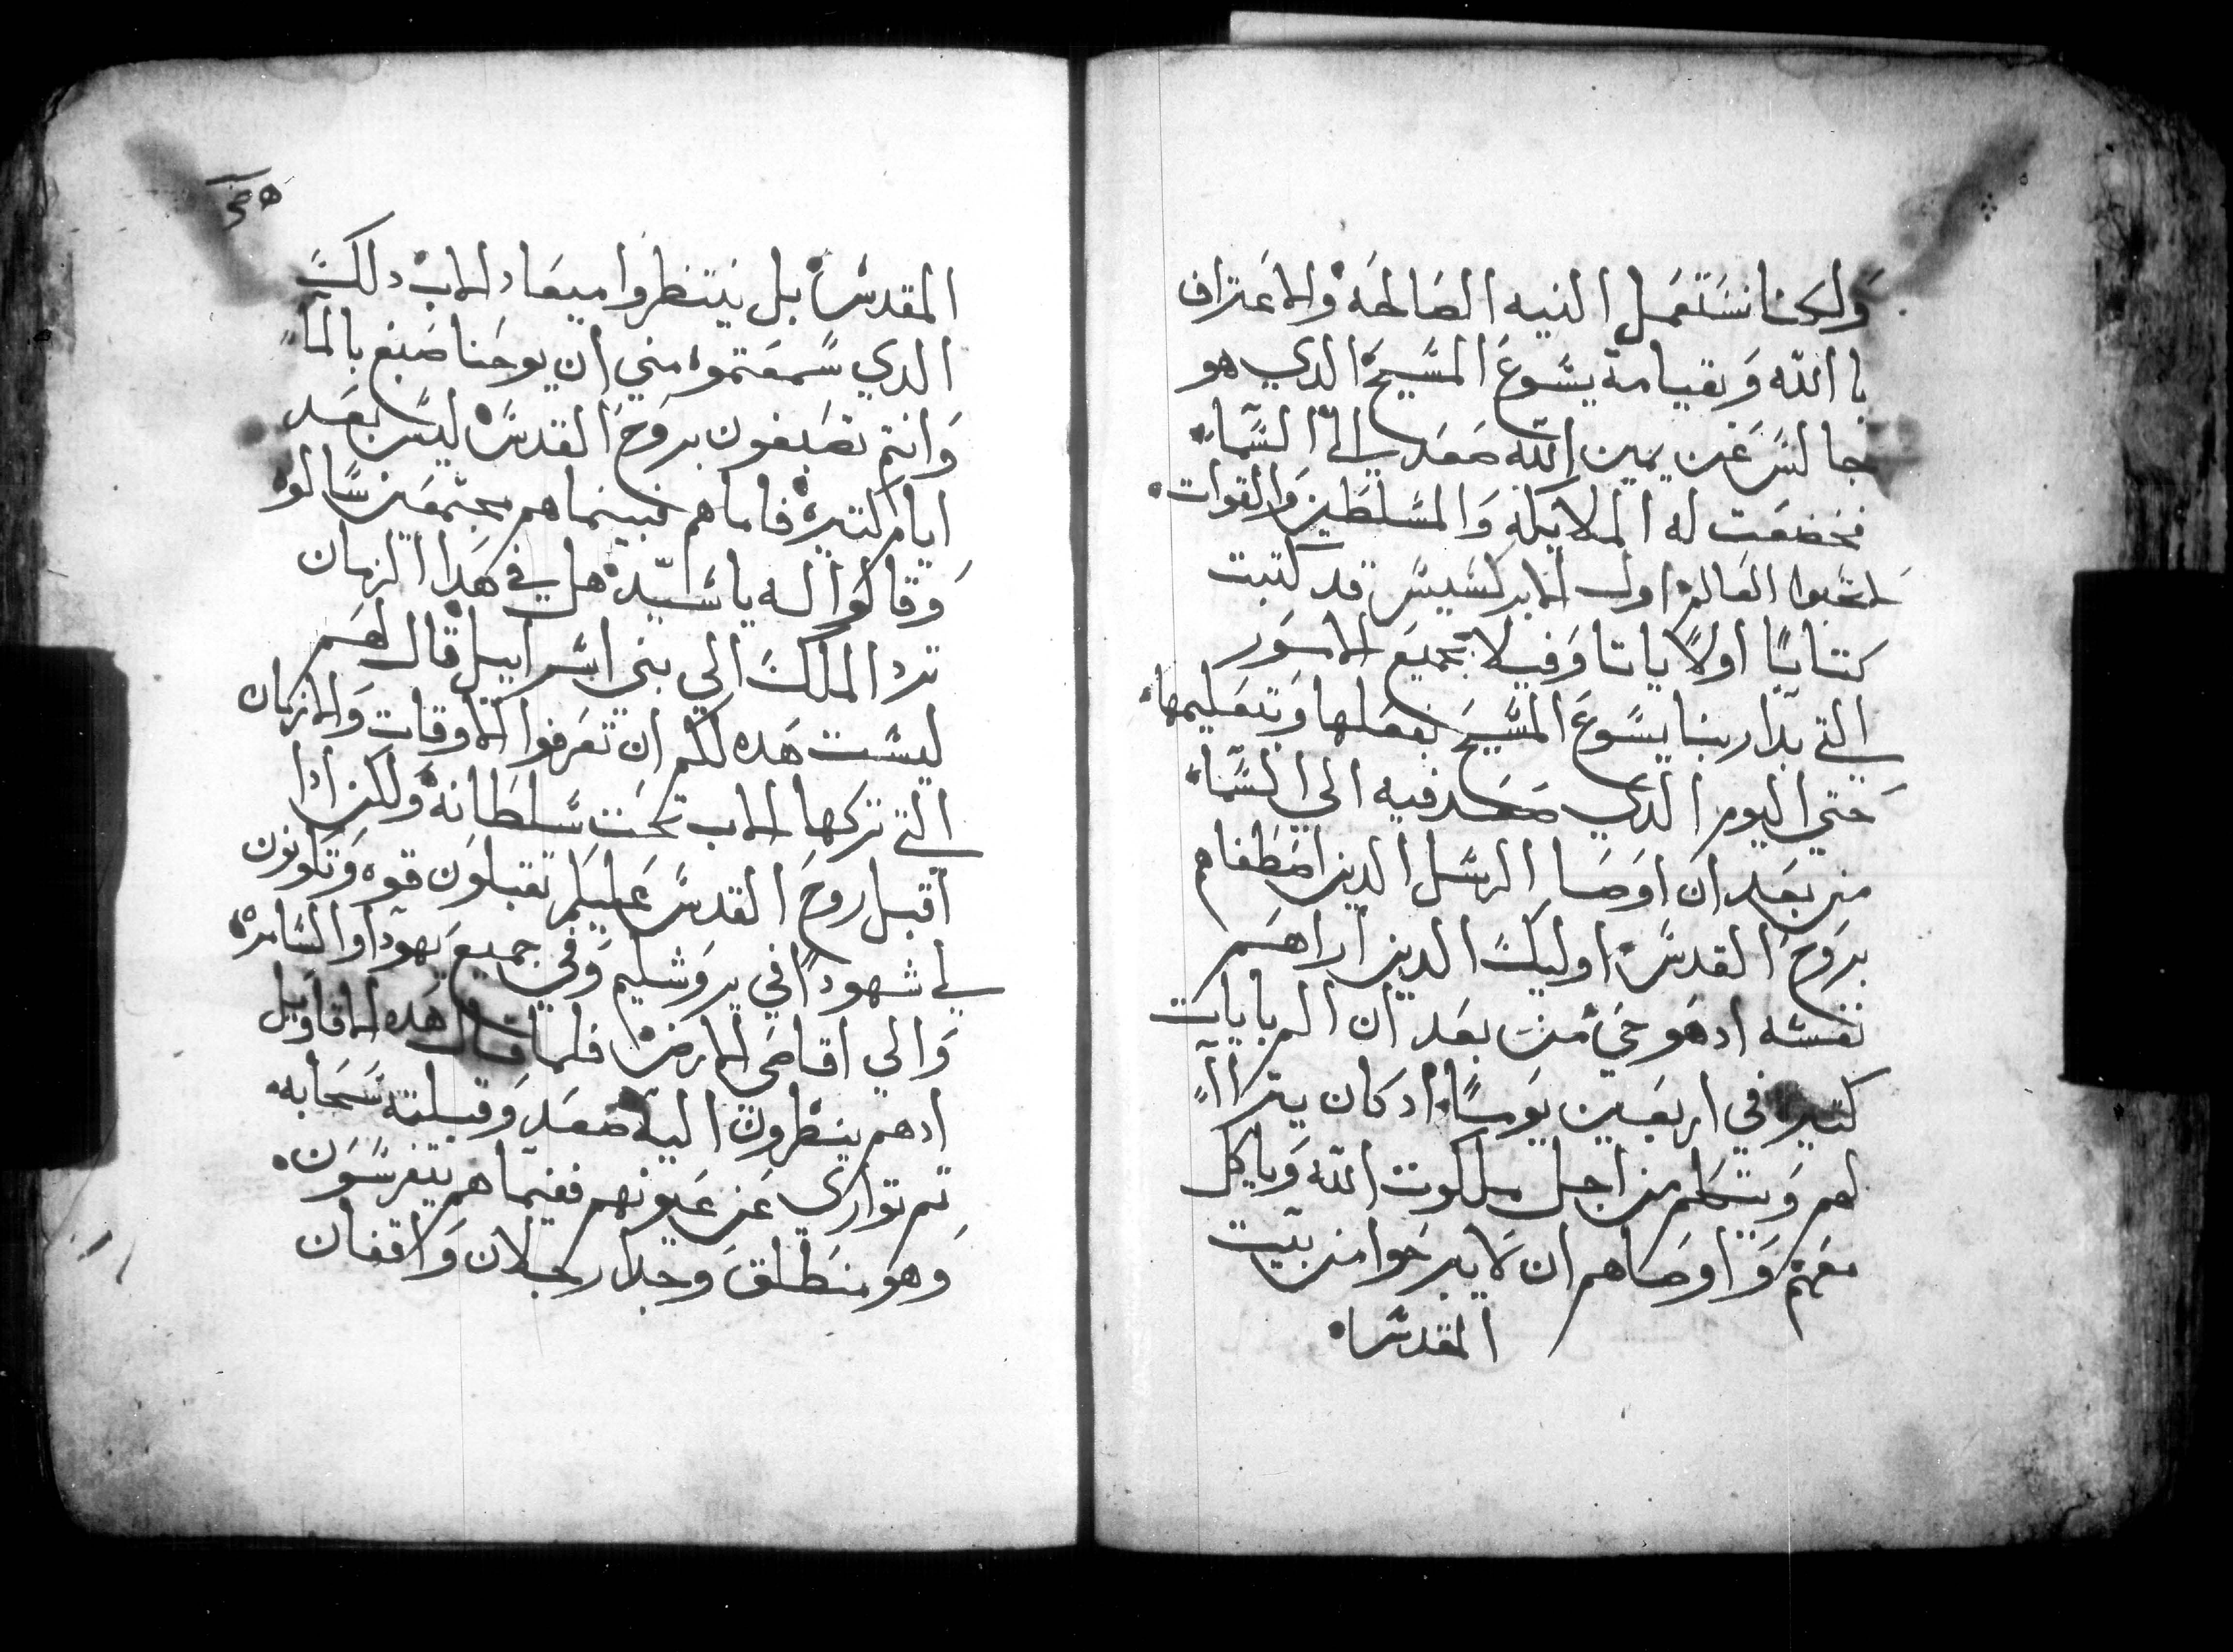 ولكننا نستعمل النيه الصالحه والاعتراف
بالله وبقيامة يسوع المسيح الدي هو
جالس عن يمين الله صعد الي السماء
فخضعت له الملايكه والمسلطين والقوات
لاتحبوا العالم اول الابركسيس قد كتبت
كتابا اولا ياتاوفيلا بجميع الامور
التي بدا ربنا يسوع المسيح بفعلها وتعليمها
حتي اليوم الدي صعد فيه الي السماء
من بعد ان اوصا الرسل الدين اصطفاهم
بروح القدس اوليك الدين اراهم
نفسه ادهو حي من بعد ان الم بايات
كتيره في اربعين يوما ادكان يتراا
لهم ويتكلم من اجل ملكوت الله وياكل
معهم واوصاهم ان لا يبرحوا من بيت
المقدس
المقدس بل ينتظروا ميعاد الاب دلك
الدي سمعتموه مني ان يوحنا صبغ بالما
وانتم تصبغون بروح القدس ليس بعد
ايام كتيره فاما هم فبينما هم مجتمعين سالوه
وقالوا له يا سيد هل في هدا الزمان
ترد الملك الي بني اسراييل قال لهم
ليست هده لكم ان تعرفوا الاوقات والازمان
التي تركها الاب تحت سلطانه ولكن ادا
اقبل روح القدس عليكم تقبلون قوه وتكونون
لي شهودا في يروشليم وفي جميع يهودا والسامره
والي اقاصي الارض فلما قال هده الاقاويل
ادهم ينظرون اليه صعد وقبلته سحابه
تم تواري عن عيونهم ففيما هم يتفرسون
وهو منطلق وجدا رجلان واقفان